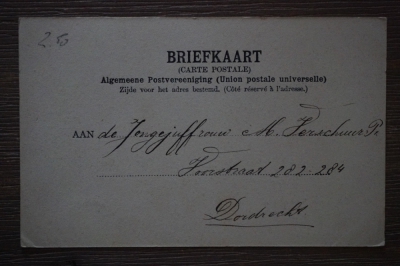 2.50
BRIEFKAART
(CARTE POSTALE)
Algemeene Postvereeniging (Union postale universelle)
Zijde voor het adres bestemd. (Côté réservé à l'adresse.)
AAN de Jongejuffrouw M.
Voorstraat 282-284
Dordrecht